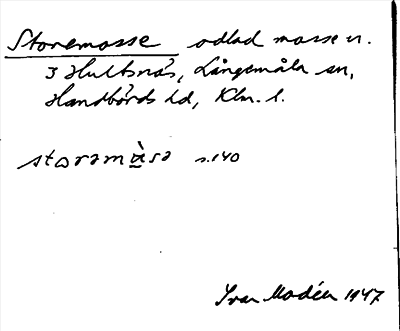 Storemosse odlad mosse n.
3 Hultsnäs, Långemåla sn,
Handbörds hd, Klm. l.
storəmòsə s.140
Ivar Modéer 1947